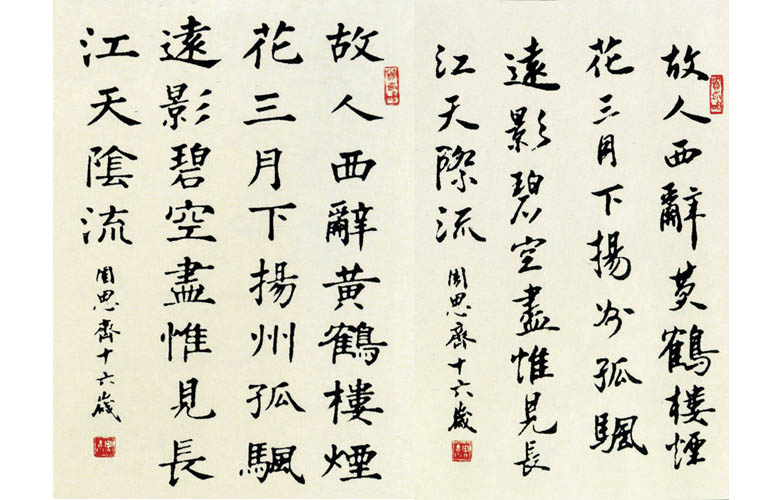 故人西辭黃鶴樓煙
花三月下揚州孤颿
遠影碧空盡惟見長
江天際流
周思齊十六歲
故人西辭黃鶴樓煙
花三月下揚州孤颿
遠影碧空盡惟見長
江天陰流
周思齊十六歲